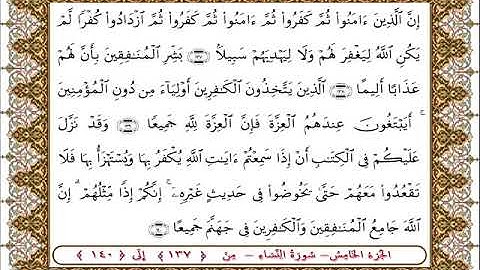 إِنَّ ٱلَّذِينَ ءَامَنُوا۟ ثُمَّ كَفَرُوا۟ ثُمَّ ءَامَنُوا۟ ثُمَّ كَفَرُوا۟ ثُمَّ ٱزْدَادُوا۟ كُفْرًا لَّمْ
يَكُنِ ٱللَّهُ لِيَغْفِرَ لَهُمْ وَلَا لِيَهْدِيَهُمْ سَبِيلًۢا ﴿١٣٧﴾ بَشِّرِ ٱلْمُنَـٰفِقِينَ بِأَنَّ لَهُمْ
عَذَابًا أَلِيمًا ﴿١٣٨﴾ ٱلَّذِينَ يَتَّخِذُونَ ٱلْكَـٰفِرِينَ أَوْلِيَآءَ مِن دُونِ ٱلْمُؤْمِنِينَ
ۚ أَيَبْتَغُونَ عِندَهُمُ ٱلْعِزَّةَ فَإِنَّ ٱلْعِزَّةَ لِلَّهِ جَمِيعًا ﴿١٣٩﴾ وَقَدْ نَزَّلَ
عَلَيْكُمْ فِى ٱلْكِتَـٰبِ أَنْ إِذَا سَمِعْتُمْ ءَايَـٰتِ ٱللَّهِ يُكْفَرُ بِهَا وَيُسْتَهْزَأُ بِهَا فَلَا
تَقْعُدُوا۟ مَعَهُمْ حَتَّىٰ يَخُوضُوا۟ فِى حَدِيثٍ غَيْرِهِۦٓ ۚ إِنَّكُمْ إِذًا مِّثْلُهُمْ ۗ إِنَّ
ٱللَّهَ جَامِعُ ٱلْمُنَـٰفِقِينَ وَٱلْكَـٰفِرِينَ فِى جَهَنَّمَ جَمِيعًا ﴿١٤٠﴾
الجزء الخامس - سورة النساء - من ﴿١٣٧﴾ إلى ﴿١٤٠﴾